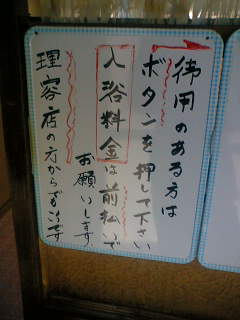 御用のある方は
ボタンを押して下さい
入浴料金は前払いで
お願いします
理容店の方からでもOKです